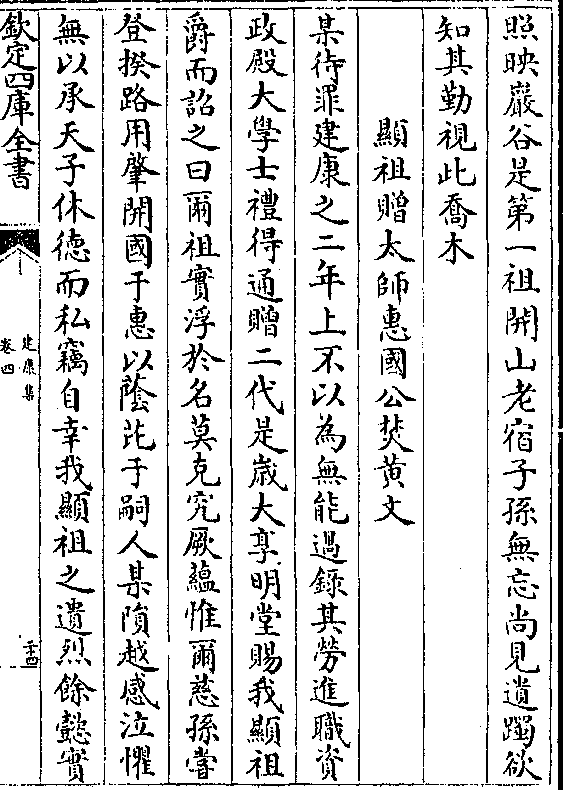 照映巖谷是第一祖開山老宿子孫無忘尚見遺躅欲
知其勤視此喬木
顯祖贈太師惠國公焚黃文
某待罪建康之二年上不以為無能過錄其勞進職資
政殿大學士禮得通贈二代是歲大享明堂賜我顯祖
爵而詔之曰爾祖實浮於名莫克究厥蘊惟爾慈孫嘗
登揆路用肇開國于惠以蔭芘于嗣人某隕越感泣懼
無以承天子休德而私竊自幸我顯祖之遺烈餘懿實
欽定四庫全書
建康集
卷四
二十四